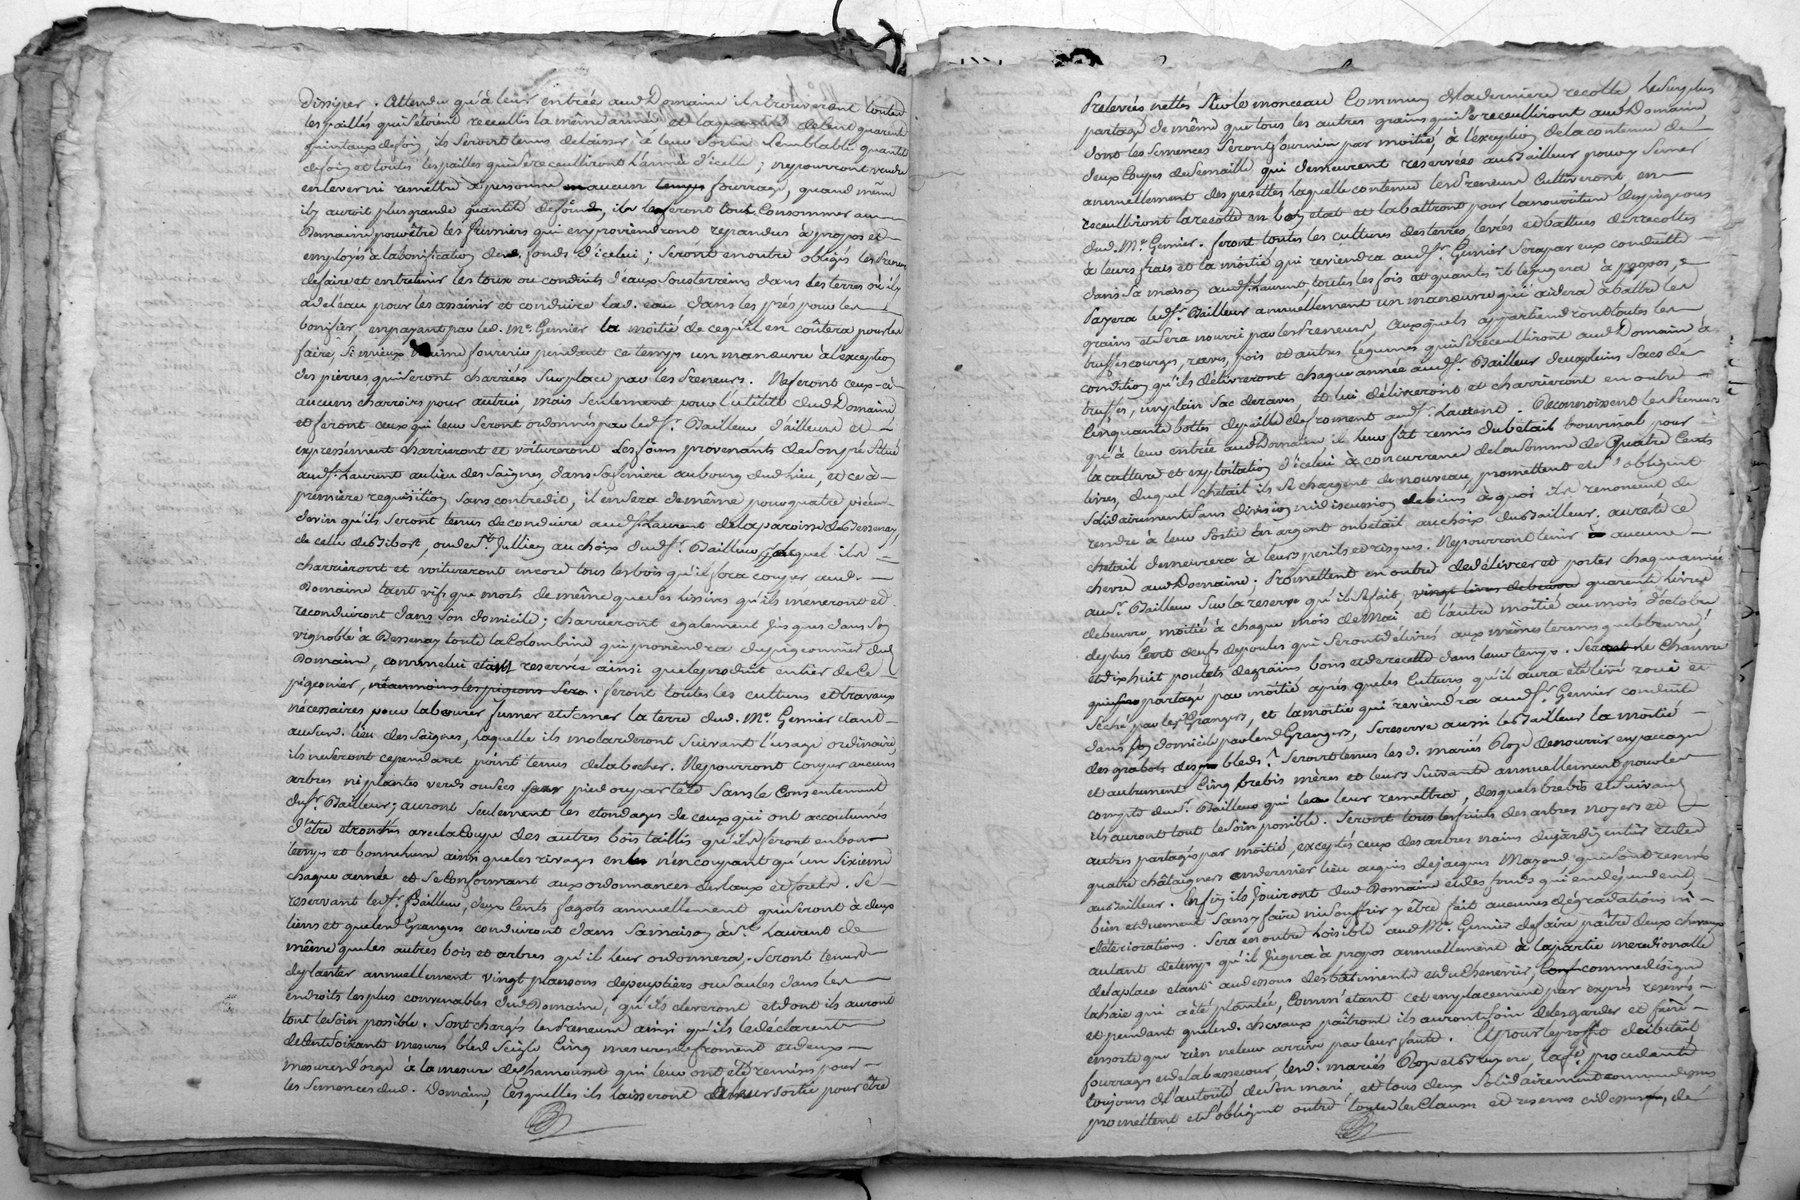 diviser. Attendu qu'à leur entrée aud. Domaine ils trouverent toutes
les pailles qui s'étoient recueillis la même année et la quantité de cent quarente
quintaux de foin, ils seront tenus de laisser à leur sortie semblable quantité
de foin et toutes les pailles qui se recueilliront l'année d'icelle ; ne pourront vendre
enlever ni remettre à personne aucun fourrage, quand même
il y auroit plus grande quantité de foins, ils les feront tous consommer au
Domaine pour être les fumiers qui en proviendront repandus à propos et
employés à la bonification des fonds d'icelui ; seront en outre obligés les Preneurs
de faire et entretenir les toux ou conduits d'eaux souterrains dans les terres où il y
a de l'eau pour les assainir et conduire lad. eau dans les prés pour les
bonifier, en payant par led. Mr. Gernier la moitié de ce qu'il en coûtera pour les
faire, si mieux n'aime fournir pendant ce temps un manœuvre à l'exception
des pierres qui seront charriées sur place par les Preneurs. Ne feront ceux-ci
aucuns charrois pour autrui, mais seulement pour l'utilité dud. Domaine
et feront ceux qui leur seront ordonnés par led. Sr. Bailleur d'ailleurs et
expressément charrieront et voitureront les foins provenants de son pré situé
aud. St. Laurent au lieu des Saignes, dans sa feniere au bourg dud. lieu, et ce à
premiere requisition sans contredit, il en sera de même pour quatre pièces
de vin qu'ils seront tenus de conduire aud. St. Laurent de la paroisse de Bessenay,
de celle de Bibost, ou de St. Jullien au choix dud. Sr. Bailleur pour lequel ils
charrieront et voitureront encore tous les bois qu'il fera couper aud.
Domaine tant vifs que morts de même que ses lissives qu'ils mèneront et
reconduiront dans son domicile ; charrieront egalement jusques dans son
vignoble à Bessenay toute la Colombine qui proviendra du pigeonnier dud.
Domaine, comme lui étant reservée ainsi que le produit entier de ce
pigeonier, néanmoins les pigeons sero. feront toutes les cultures et travaux
nécessaires pour labourer fumer et semer la terre dud. Mr. Gernier étant
aud. lieu des Saignes, laquelle ils molarderont suivant l'usage ordinaire
ils ne seront cependant point tenus de la bécher. Ne pourront couper aucuns
arbres ni plantes verds ou secs par pied ou par tête sans le consentement
dud. Sr. Bailleur ; auront seulement les étondages de ceux qui ont accoutumés
d'être étronchés avec la coupe des autres bois taillis qu'ils feront en bon
temps et bonne lune ainsi que les rivages en n'en coupant qu'un sixieme
chaque année et se conformant aux ordonnances des Eaux et forêts. Se
reservant led. Sr. Bailleur, deux cents fagots annuellement qui seront à deux
liens et que led. Grangers conduiront dans sa maison à St. Laurent de
même que les autres bois et arbres qu'il leur ordonnera. Seront tenus
de planter annuellement vingt plansons de peupliers ou saules dans les
endroits les plus convenables dud. Domaine, qu'ils éleveront et dont ils auront
tout le soin possible. Sont chargés les Preneurs ainsi qu'ils le déclarent
de cent soixante mesures bled seigle cinq mesures de froment et deux
mesures d'orge à la mesure de Chamousset qui leur ont été remises pour
les semences dud. Domaine, lesquelles ils laisseront à leur sortie pour être
Prelevées nettes sur le monceau commun de la derniere recolte le surplus
partagé de même que tous les autres grains qui se recueilliront aud. Domaine
dont les semences seront fournies par moitié à l'exception de la contenue de
deux coupes de semaille qui demeurent reservées au Bailleur pour y semer
annuellement des pesettes laquelle contenue les Preneurs cultiveront en
recueilliront la recolte en bon état et la battront pour la nourriture des pigeons
dud. Mr. Gernier. feront toutes les cultures des terres, levées et battues des recoltes
à leurs frais et la moitié qui reviendra aud. Sr. Gernier sera par eux conduitte
dans sa maison aud. St. Laurent, toutes les fois et quantes il le jugera à propos, &
Payera led. Sr. Bailleur annuellement un manœuvre qui aidera à battre les
grains et sera nourri par les Preneurs, auxquels appartiendront toutes les
truffes courges, raves, pois et autres légumes qui se recueilliront aud. Domaine à
condition qu'ils délivreront chaque année aud. Sr. Bailleur deux pleins sacs de
truffes, un plein sac de raves, et lui délivreront et charrieront en outre
Cinquante bottes de paille de froment aud. St. Laurent. Reconnoissent les Preneurs
qu'à leur entrée aud. Domaine il leur fût remis du bétail bouvinal pour
la culture et exploitation d'icelui à concurrence de la somme de Quatre Cents
livres, duquel chétail ils se chargent de nouveau, promettent et s'obligent
solidairement sans division ni discussion de biens à quoi ils renoncent de
rendre à leur sortie en argent ou bétail au choix du Bailleur. au reste ce
chétail demeurera à leurs perils et risques. Ne pourront tenir aucune
chevre aud. Domaine ; Promettent en outre de délivrer et porter chaque année
aud. Sr. Bailleur sur la reserve qu'il se fait, vingt livres de beurre quarente livres
de beurre, moitié à chaque mois de Mai et l'autre moitié au mois d'octobre
de plus Cent œufs de poules qui seront délivrés aux mêmes termes que le beurre,
et dix huit poulets de grains bons et de recette dans leur temps. Sera le Chanvre
partagé par moitié après que les cultures qu'il aura été tiré roui et
séché par les Grangers, et la moitié qui reviendra aud. Sr. Gernier conduite
dans son domicile par lesd. Grangers, se reserve aussi le Bailleur la moitié
des grabots des bleds. Seront tenus les d. mariés Roze de nourrir en paccage
et autrement cinq brebis mères et leurs suivants annuellement pour le
compte dud. Sr. Bailleur qui leur remettra, desquels brebis et suivans
ils auront tout le soin possible. Seront tous les fruits des arbres noyers et
autres partagés par moitié, exceptés ceux des arbres nains du jardin entier et les
quatre châtaigners au dernier lieu acquis de Jacques Mazond qui sont reservés
au Bailleur. Enfin ils jouiront dud. Domaine et des fonds qui en dépendent
bien et duement sans y faire ni souffrir y être fait aucunes dégradations ni
déteriorations. Sera en outre loisible aud. Mr. Gernier de faire paître deux chevaux
autant de temps qu'il jugera à propos annuellement à la partie meredionalle
de la place étant au dessous des batiments et du Chenevier, comme désigné
la haie qui a été plantée, comm'étant cet emplacement par exprès reservé
et pendant que lesd. chevaux paîtront ils auront soin de les garder et faire
ensorte que rien ne leur arrive par leur faute. Et pour le proffit du bétail
fourrages et de la bassecour, lesd. mariés Roze et Bruyere, la fe. procedante
toujours de l'autorité de son mari, et tous deux solidairement comme dessus
promettent et s'obligent outre toutes les clauses et reserves ci dessus, de